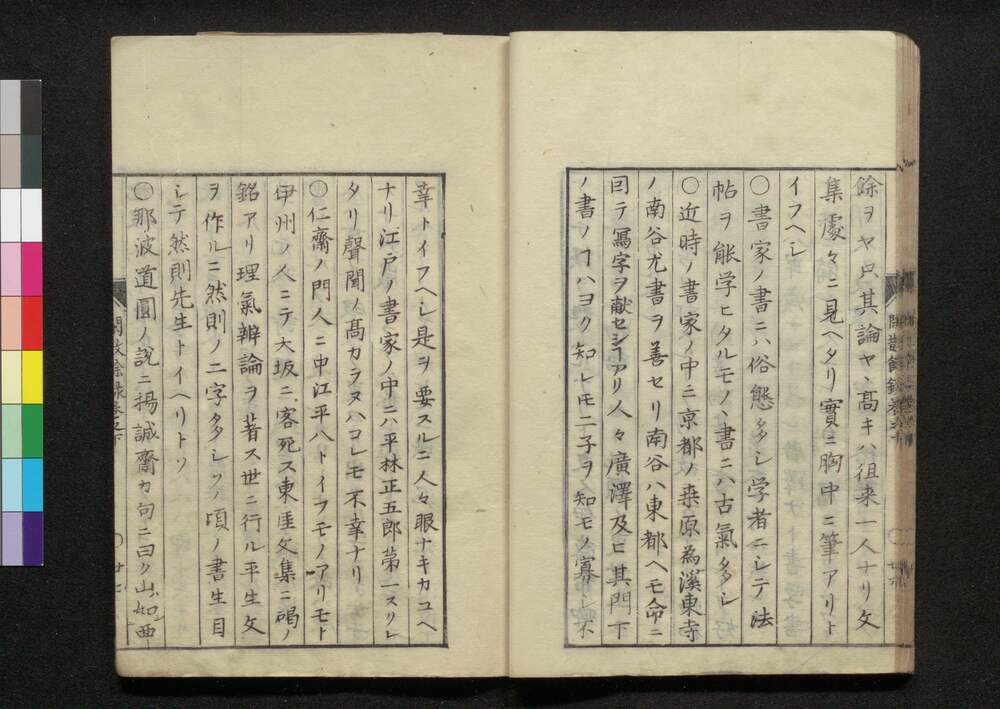 餘ヲヤ只其論ヤヽ髙キハ徂来一人ナリ文
集處々ニ見ヘタリ實ニ胸中ニ筆アリト
イフヘシ
〇書家ノ書ニハ俗態多シ学者ニシテ法
帖ヲ能学ヒタルモノヽ書ニハ古氣多シ
〇近時ノ書家ノ中ニ京都ノ桒原為溪東寺
ノ南谷尤書ヲ善セリ南谷ハ東都ヘモ命ニ
回テ冩字ヲ献セシーアリ人々廣澤及ヒ其門下
ノ書ノヿハヨク知レモ二子ヲ知モノ寡シ
幸トイフヘシ是ヲ要スルニ人々眼ナキカユヘ
ナリ江戸ノ書家ノ中ニハ平林正五郎第一スクレ
タリ聲聞ノ髙カラヌハコレモ不幸ナリ
〇仁齋ノ門人ニ中江平八トイフモノアリモト
伊州ノ人ニテ大坂ニ客死ス東涯文集ニ碣ノ
銘アリ理氣辨論ヲ著ス世ニ行ル平生文
ヲ作ルニ然則ノ二字多シソノ頃ノ書生目
シテ然則先生トイヘリトソ
〇那波道圓ノ説ニ揚誠齋カ句ニ曰ク山如西